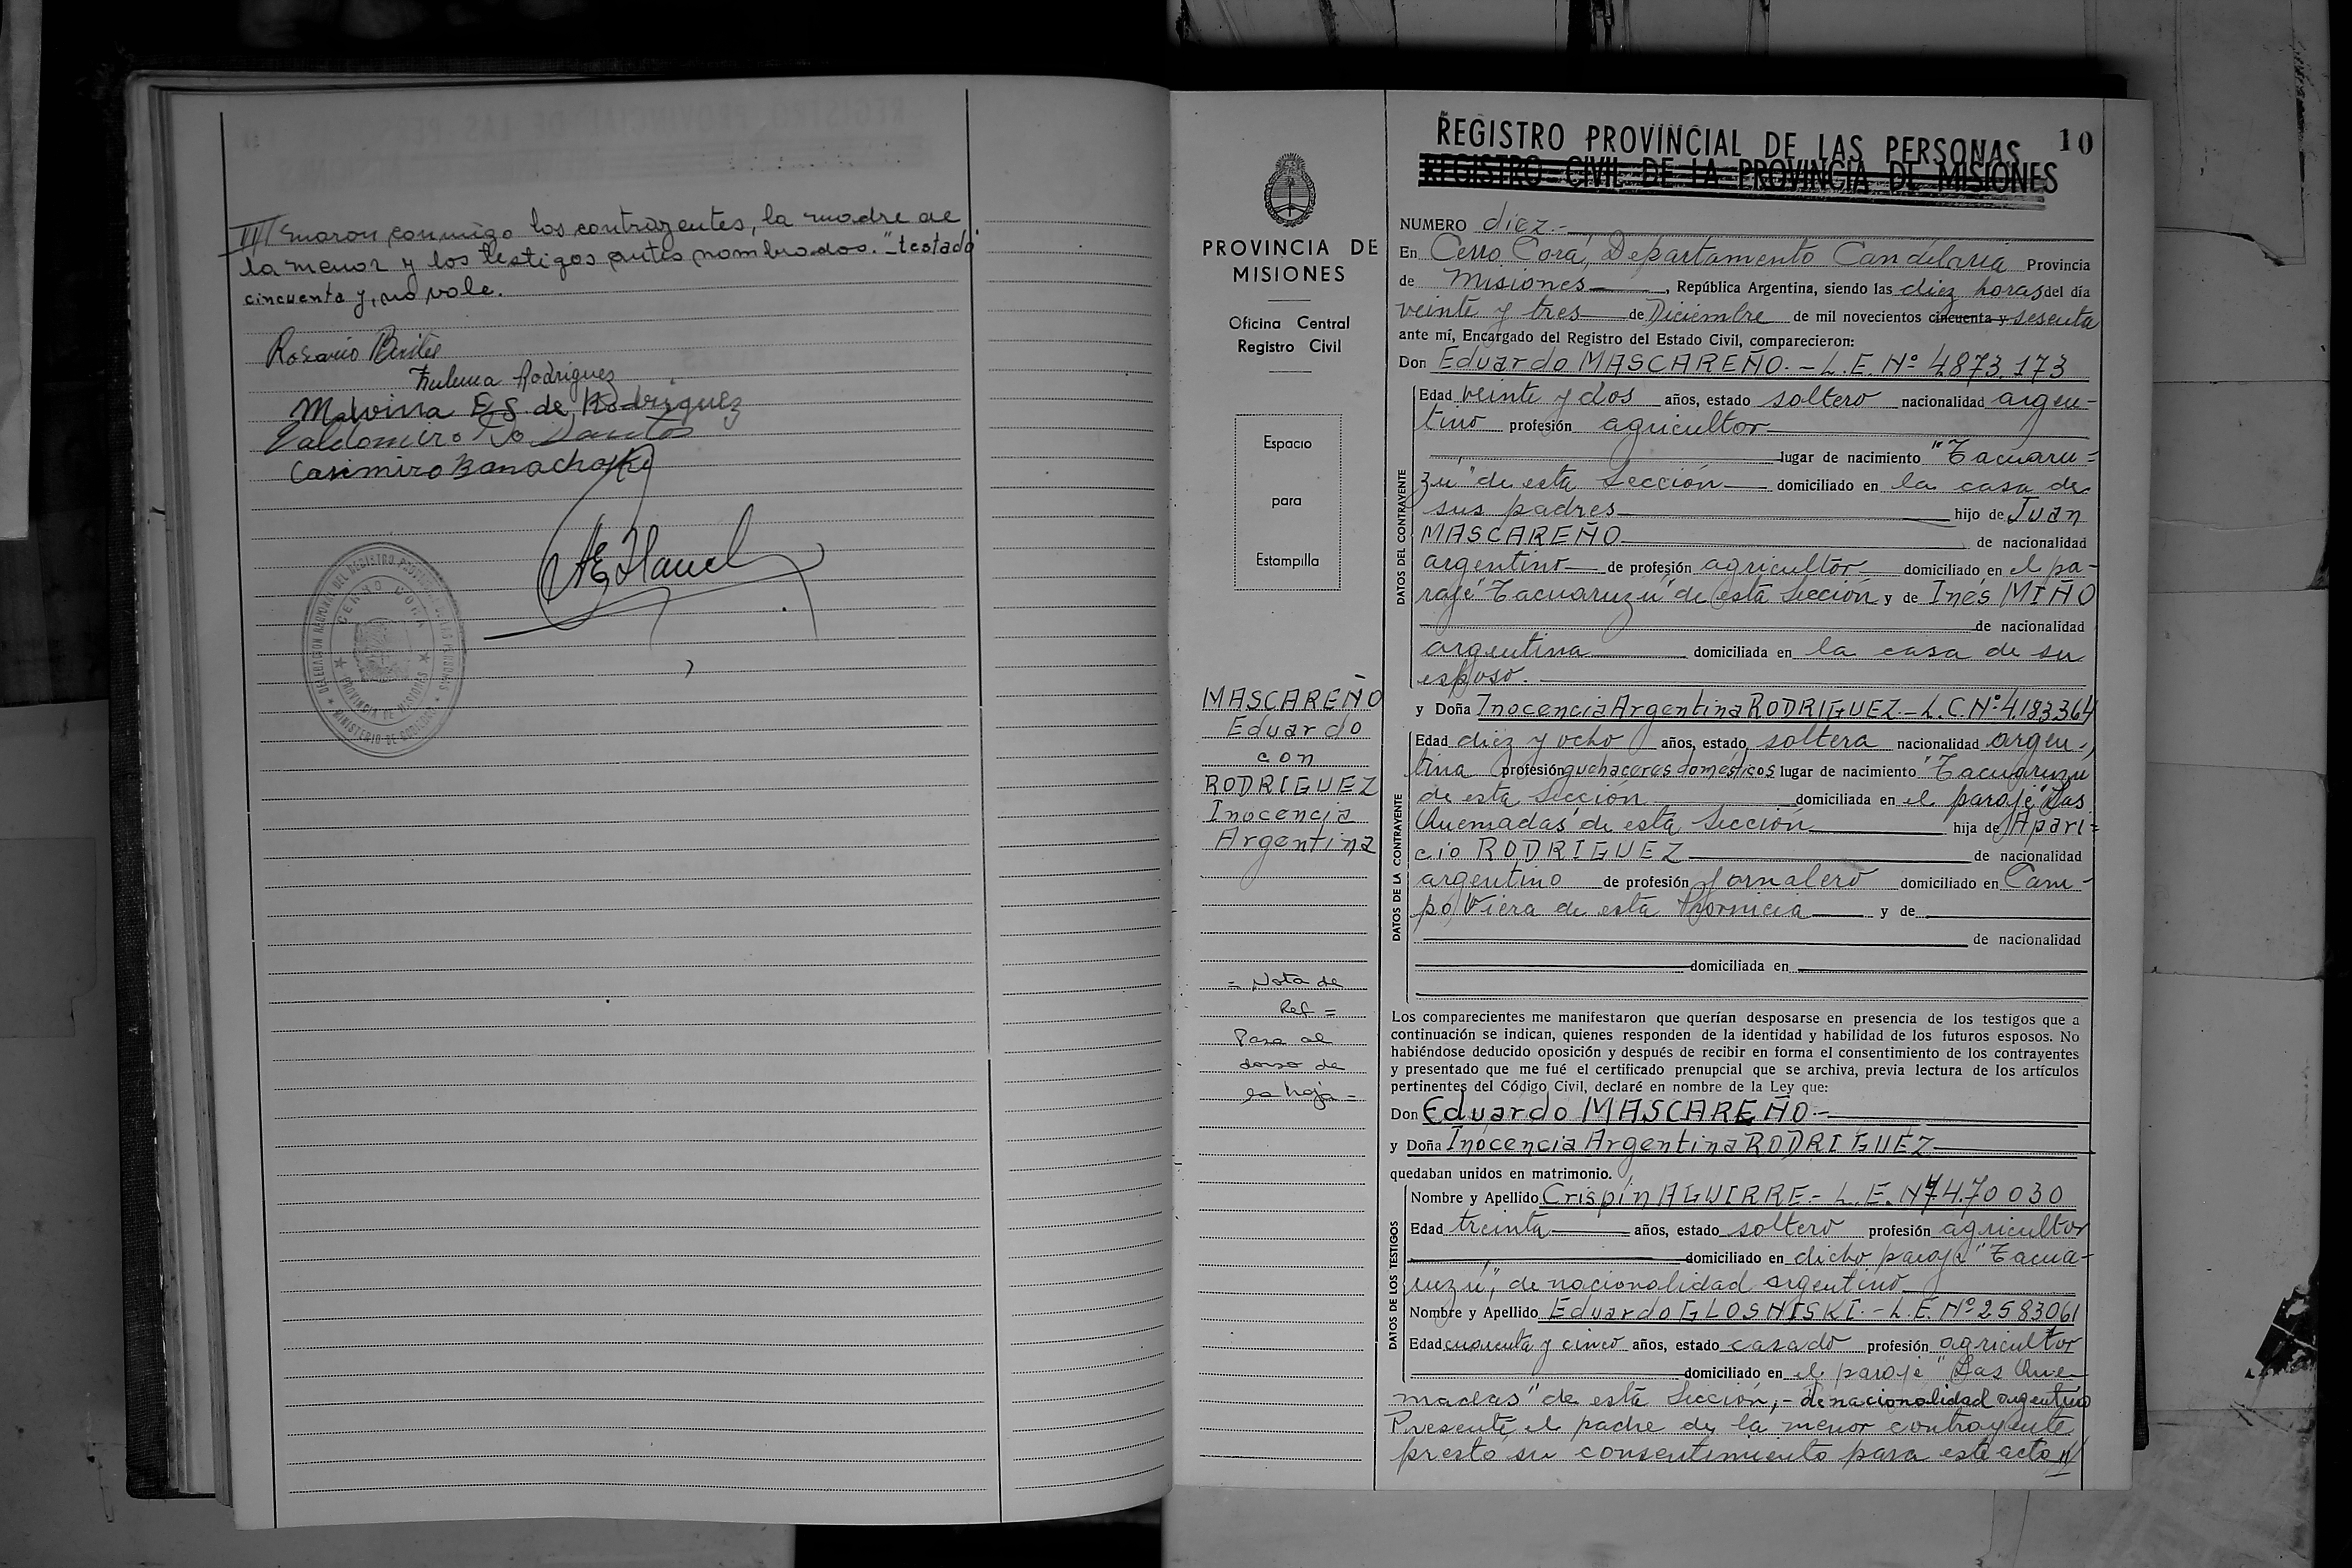 /// maron conmigo los contrayentes, la madre de
la menor y los testigos antes nombrados."-testado
cincuenta y, no vale.
Rosario
Zulema Rodriguez
Malvina E S. de Rodriguez
Valdomiro Do Santos
Casimiro Banachoski
CERRO CORA
PROVINCIA DE MISIONES
MINISTERIO DE GOBIERNO
PROVINCIA DE
MISIONES
Oficina Central
Registro Civil
Espacio
para
Estampilla
MASCAREÑO
Eduardo
con
RODRIGUEZ
Inocencia
Argentina
= Nota de
Ref =
Pasa al
dorso de
la hoja =
REGISTRO PROVINCIAL DE LAS PERSONAS 10
REGISTRO CIVIL DE LA PROVINCIA DE MISIONES
NUMERO diez.-
En Cerro Corá, Departamento Candelaria Provincia
de Misiones , República Argentina, siendo las diez horas del día
veinte y tres de Diciembre de mil novecientos cincuenta y sesenta
ante mí, Encargado del Registro del Estado Civil, comparecieron:
Don Eduardo MASCAREÑO.- L.E. Nº 4873.173
DATOS DEL CONTRAYENTE
Edad veinte y dos años, estado soltero nacionalidad argen-
tino profesión agricultor
lugar de nacimiento "Tacuaru=
zú" de esta Sección domiciliado en la casa de
sus padres hijo de Juan
MASCAREÑO de nacionalidad
argentino de profesión agricultor domiciliado en el pa-
raje "Tacuaruzú" de esta Sección y de Inés MIÑO
de nacionalidad
argentina domiciliada en la casa de su
esposo.
y Doña Inocencia Argentina RODRIGUEZ.- L.C. Nº 4183364
DATOS DE LA CONTRAYENTE
Edad diez y ocho años, estado soltera nacionalidad argen-
tina profesión quehaceres domésticos lugar de nacimiento "Tacuaruzú"
de esta Sección domiciliada en el paraje "Las
Quemadas" de esta Sección hija de Apari=
cio RODRIGUEZ de nacionalidad
argentino de profesión jornalero domiciliado en Cam-
po Viera de esta Provincia y de
de nacionalidad
domiciliada en
Los comparecientes me manifestaron que querían desposarse en presencia de los testigos que a
continuación se indican, quienes responden de la identidad y habilidad de los futuros esposos. No
habiéndose deducido oposición y después de recibir en forma el consentimiento de los contrayentes
y presentado que me fué el certificado prenupcial que se archiva, previa lectura de los artículos
pertinentes del Código Civil, declaré en nombre de la Ley que:
Don Eduardo MASCAREÑO-
y Doña Inocencia Argentina RODRIGUEZ
quedaban unidos en matrimonio.
DATOS DE LOS TESTIGOS
Nombre y Apellido Crispín AGUIRRE.- L.E. Nº 7.470 030
Edad treinta años, estado soltero profesión agricultor
domiciliado en dicho paraje "Tacua-
ruzú", de nacionalidad argentino
Nombre y Apellido Eduardo GLOSNISKI.- L.E. Nº 2583061
Edad cuarenta y cinco años, estado casado profesión agricultor
domiciliado en el paraje "Las Que-
madas" de esta Sección,- de nacionalidad argentino
Presente el padre de la menor contrayente
prestó su consentimiento para este acto ///